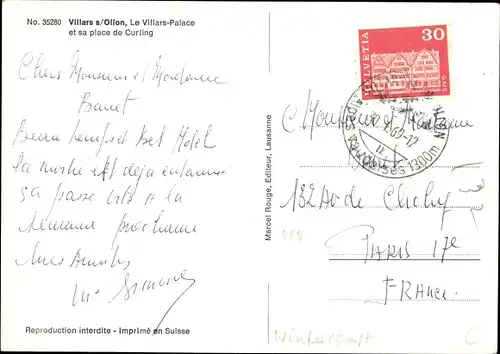 No. 35280 Villars s/Ollon, Le Villars-Palace
et sa place de Curling
Chers Monsieur et Madame
Banet
Beau temps et bel Hôtel
la moitié est déjà entamée
ça passe vite et la
semaine prochaine
Mes Amitiés
Simone
Reproduction interdite - Imprimé en Suisse
Marcel Rouge, Editeur, Lausanne
HELVETIA 30
GAIS
1300m
Monsieur et Madame
132 Av de Clichy
PARIS 17e
FRANCE.
Wintersport
C